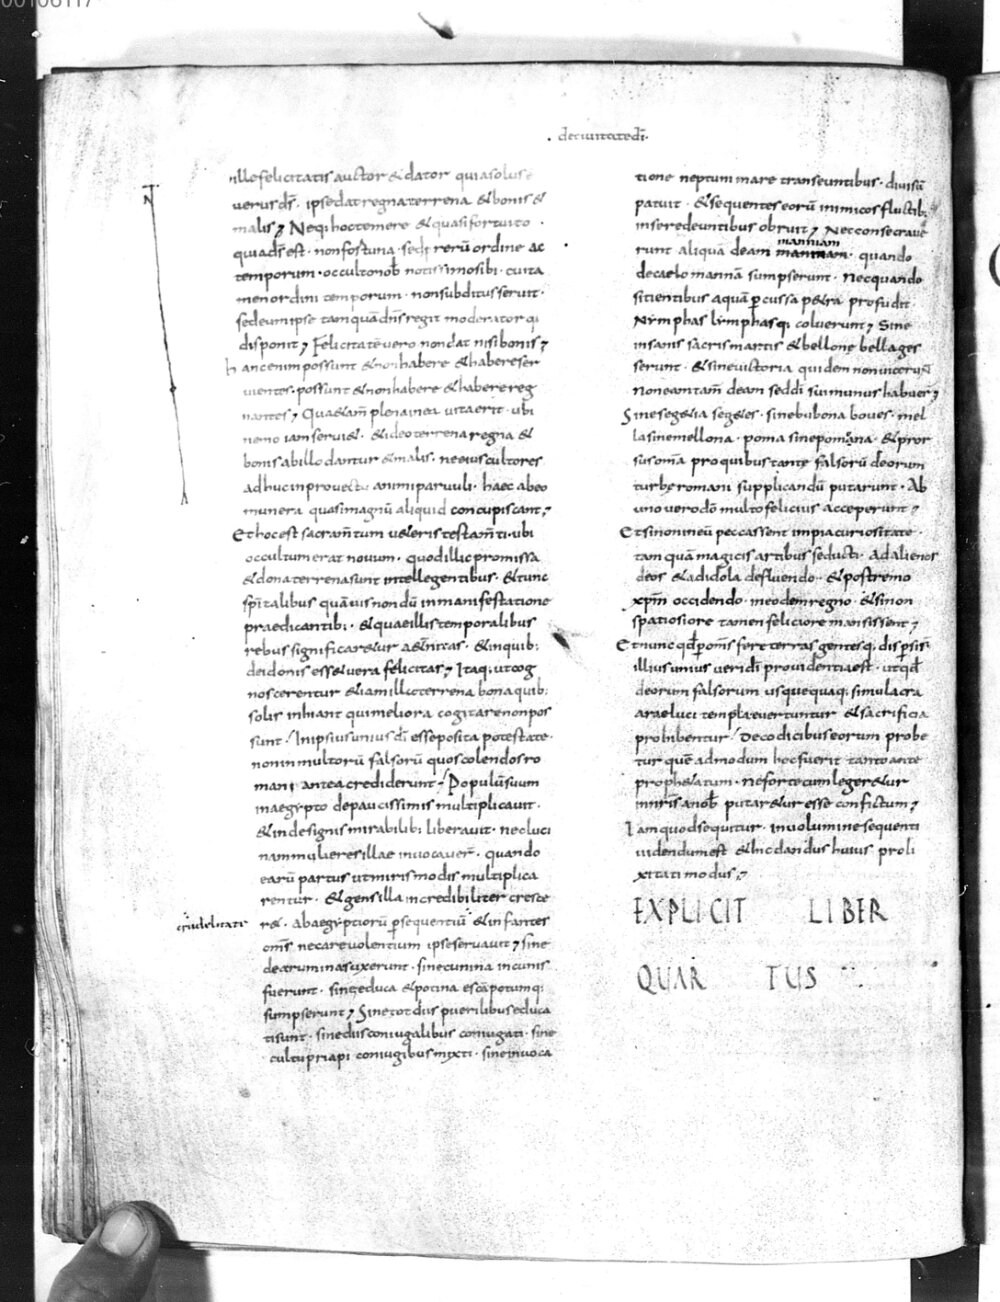 de civitate dī
ille felicitatis auctor & dator quia solus e
verus ds̄. ipse dat regna terrena & bonis &
malis; Neq; hoc temere & quasi fortuito
quia ds̄ est. non fortuna. sed p rerū ordine ac
temporum. occulto nob̄ notissimo sibi. cui ta
men ordini temporum. non subditus servit.
sed eum ipse tamquā dn̄s regit moderatorq;
disponit; Felicitatē vero non dat nisi bonis;
hanc enim possunt & non habere & habere ser
vientes. possunt & non habere & habere reg
nantes; Quae tam̄ plena in ea vita erit. ubi
nemo iam servi&. & ideo terrena regna &
bonis ab illo dantur & malis. ne eius cultores
adhuc in provectu animi parvuli. haec ab eo
munera quasi magnū aliquid concupiscant;
Et hoc est sacram̄tum v&eris testam̄ti. ubi
occultum erat novum. quod illic promissa
& dona terrena sunt intellegentibus. & tunc
spītalibus quāvis nondū in manifestatione
praedicantib;. & quae illis temporalibus
rebus significar&ur a&n̄itas. & in quib;
dei donis ess& vera felicitas; Itaq; ut cog
noscerentur & iam illic terrena bona quib;
solis inhiant qui meliora cogitare non pos
sunt. In ipsius unius dī esse posita potestate.
non in multorū falsorū quos colendos ro
mani antea crediderunt. Populū suum
in aegypto de paucissimis multiplicavit.
& inde signis mirabilib; liberavit. nec luci
nam mulieres illae invocaver̄. quando
earū partus ut miris modis multiplica
rentur. & gens illa incredibiliter cresce
crudelitate
r&. ab aegyptiorū psequentiū & infantes
om̄s necare volentium ipse servavit; sine
dea rumina suxerunt. sine cunina in cunis
fuerunt. sine educa & potina escā potumq;
sumpserunt; Sine tot dīis puerilibus educa
ti sunt. sine dīis coniugalibus coniugati. sine
cultu priapi coniugibus myxti. sine invoca
tione neptuni mare transeuntibus. divisū
patuit. & sequentes eorū inimicos fluctib;
in se redeuntibus obruit; Nec consecrave
manniam
runt aliquā deam mannam. quando
de caelo mannā sumpserunt. Nec quando
sitientibus aquā pcussa p&ra profudit.
Nymphas lymphasq; coluerunt; Sine
insanis sacris martis & bellone bella ges
serunt. & sine victoria quidem non vicerunt
non eam tam̄ deam sed dī sui munus habuer̄;
Sine seg&ia seg&es. sine bubona boves. mel
la sine mellona. poma sine pomona. & pror
sus om̄a pro quibus tante falsorū deorum
turbe romani supplicandū putarunt. Ab
uno vero dō multo felicius acceperunt;
Et si non in eū peccassent impia curiositate.
tamquā magicis artibus seducti. ad alienos
deos & ad idola defluendo. & postremo
xpm̄ occidendo. in eodem regno. & si non
spatiosiore tamen feliciore mansissent;
Et nunc qd̄ p om̄s fere terras gentesq; dispsi s̄.
illius unius veri dī providentia est. ut qd̄
deorum falsorum usquequaq; simulacra
arae luci templa evertuntur & sacrificia
prohibentur. De codicibus eorum probe
tur quē admodum hoc fuerit tanto ante
proph&atum. Ne forte cum leger&ur
in nr̄is a nob̄ putar&ur esse confictum;
Iam quod sequitur. in volumine sequenti
videndum est & hic dandus huius proli
xitati modus;
EXPLICIT LIBER
QUAR TUS